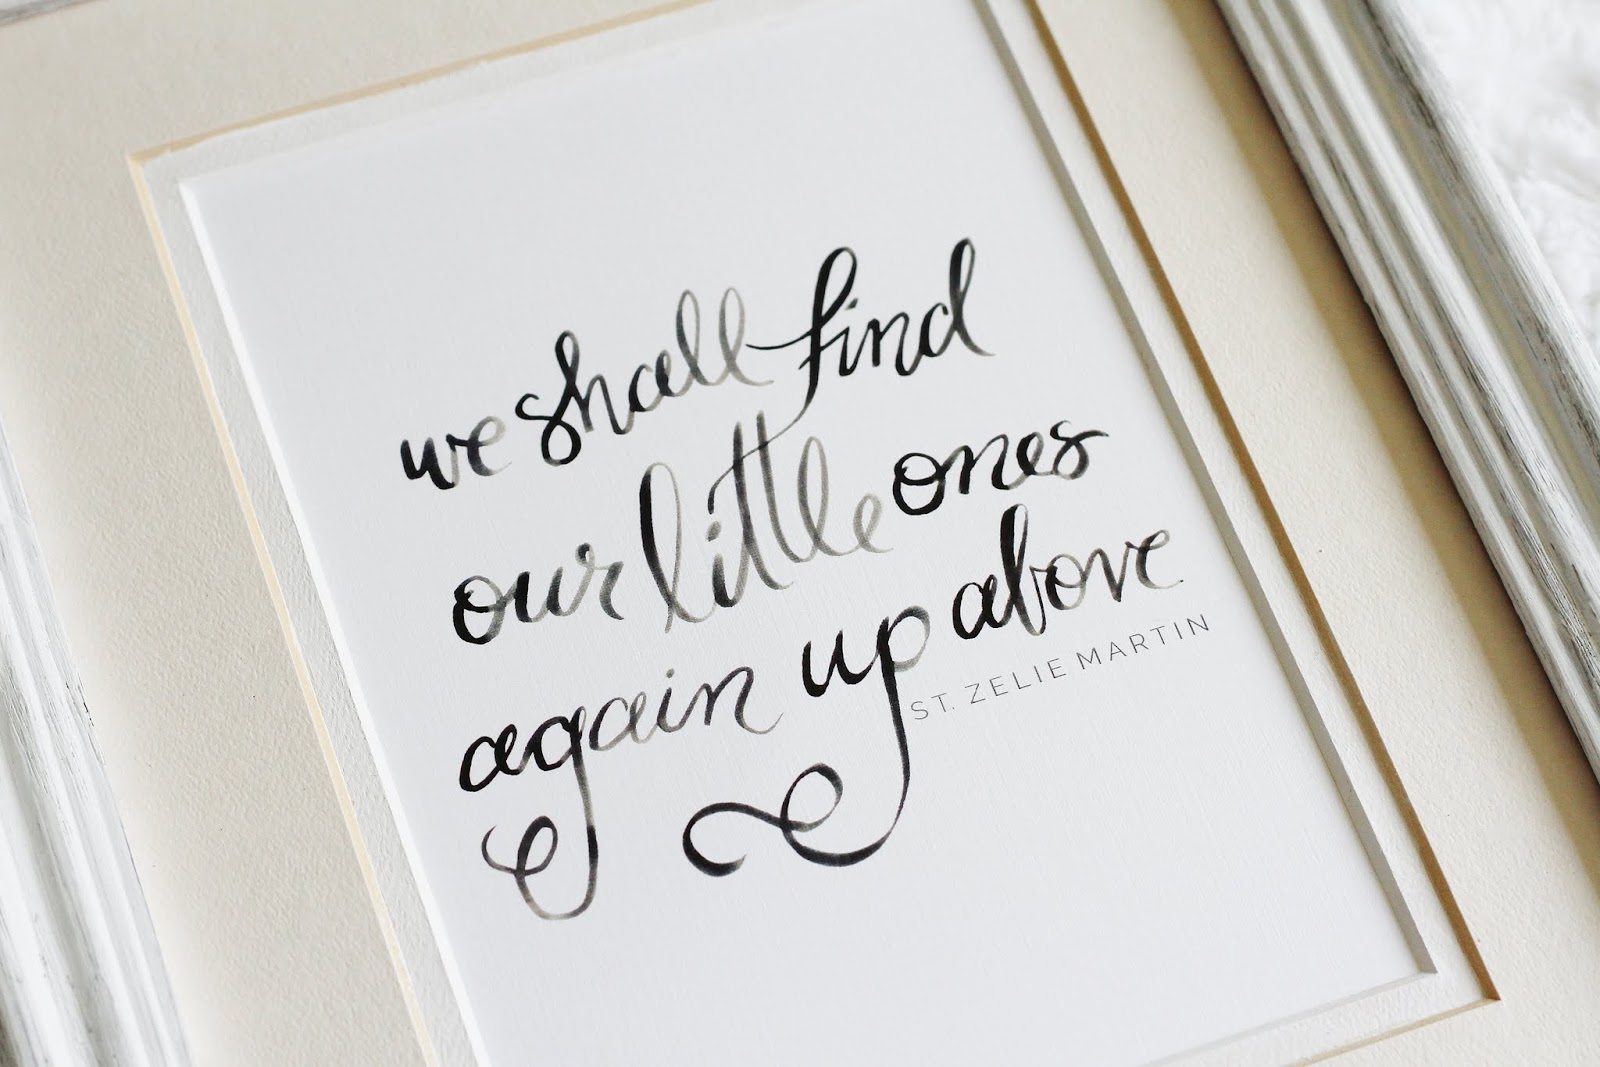 we shall find
our little ones
again up above
ST. ZELIE MARTIN